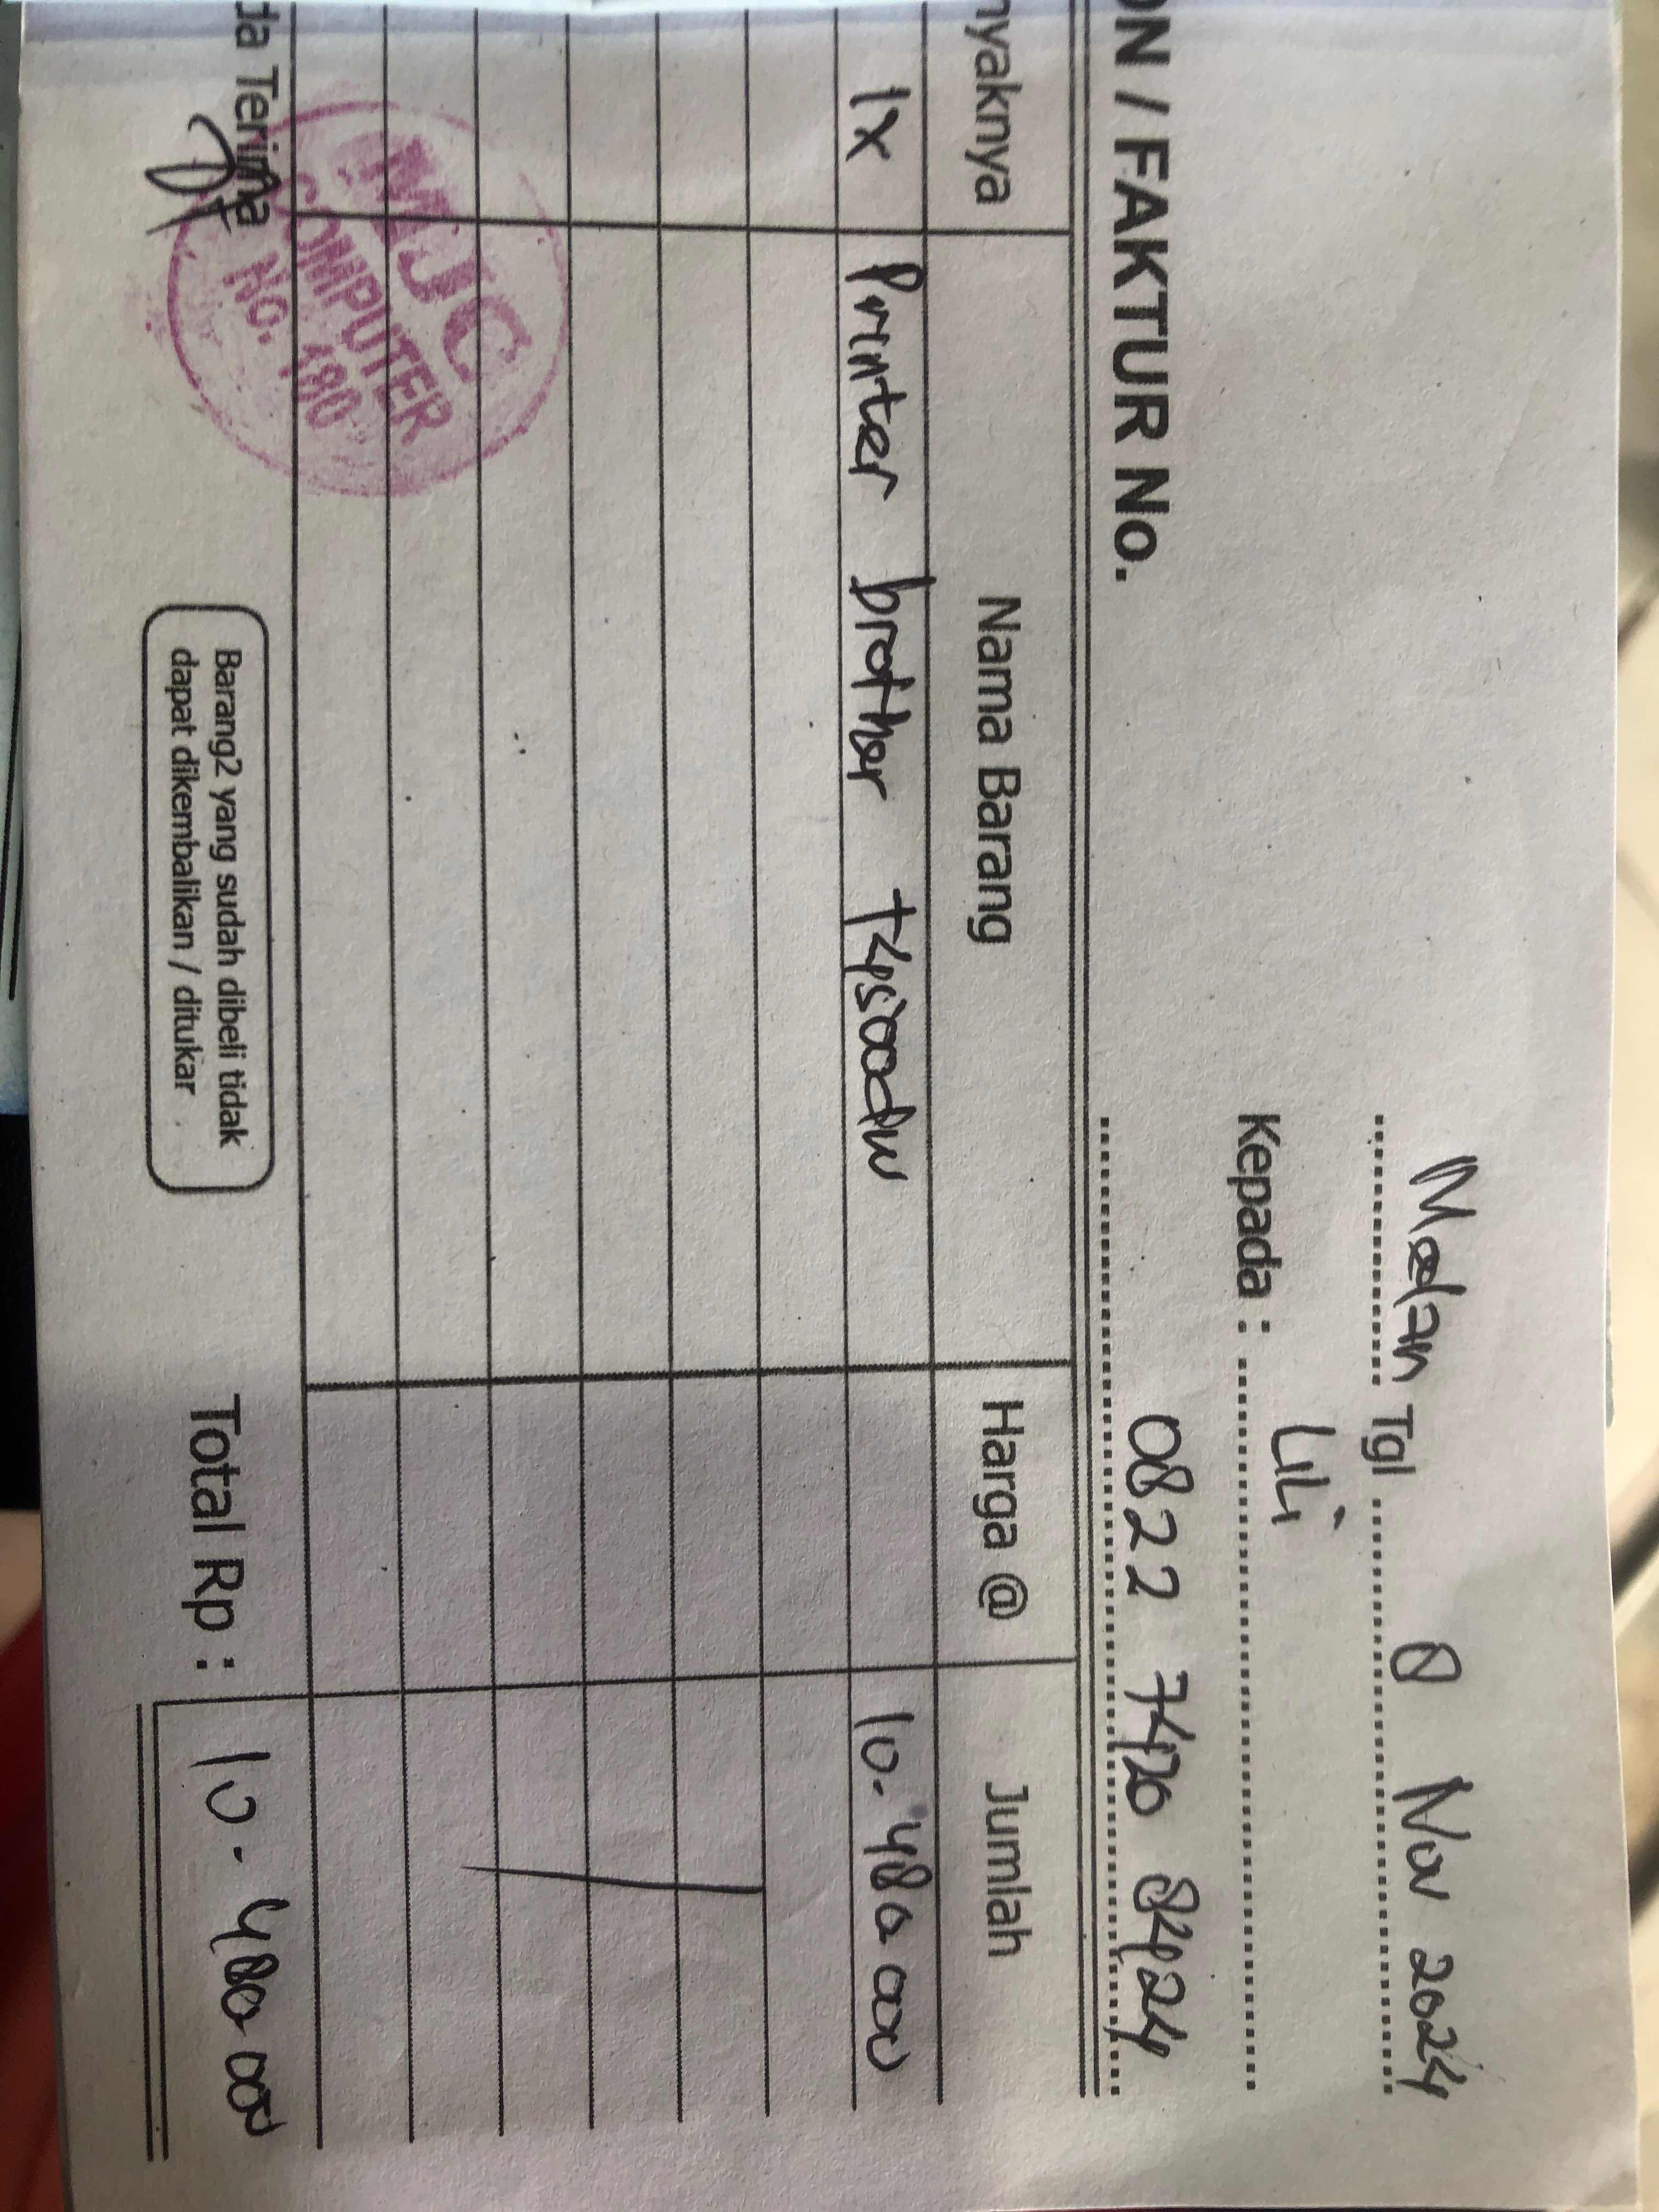 Medan Tgl 8 Nov 2024
Kepada : Lili
ON / FAKTUR No.
0822 7420 8424
nyaknya Nama Barang Harga @ Jumlah
1x Printer brother T4500dw 10.480.000
da Terima
MJC
COMPUTER
No. 180
Barang2 yang sudah dibeli tidak
dapat dikembalikan / ditukar
Total Rp : 10.480.000